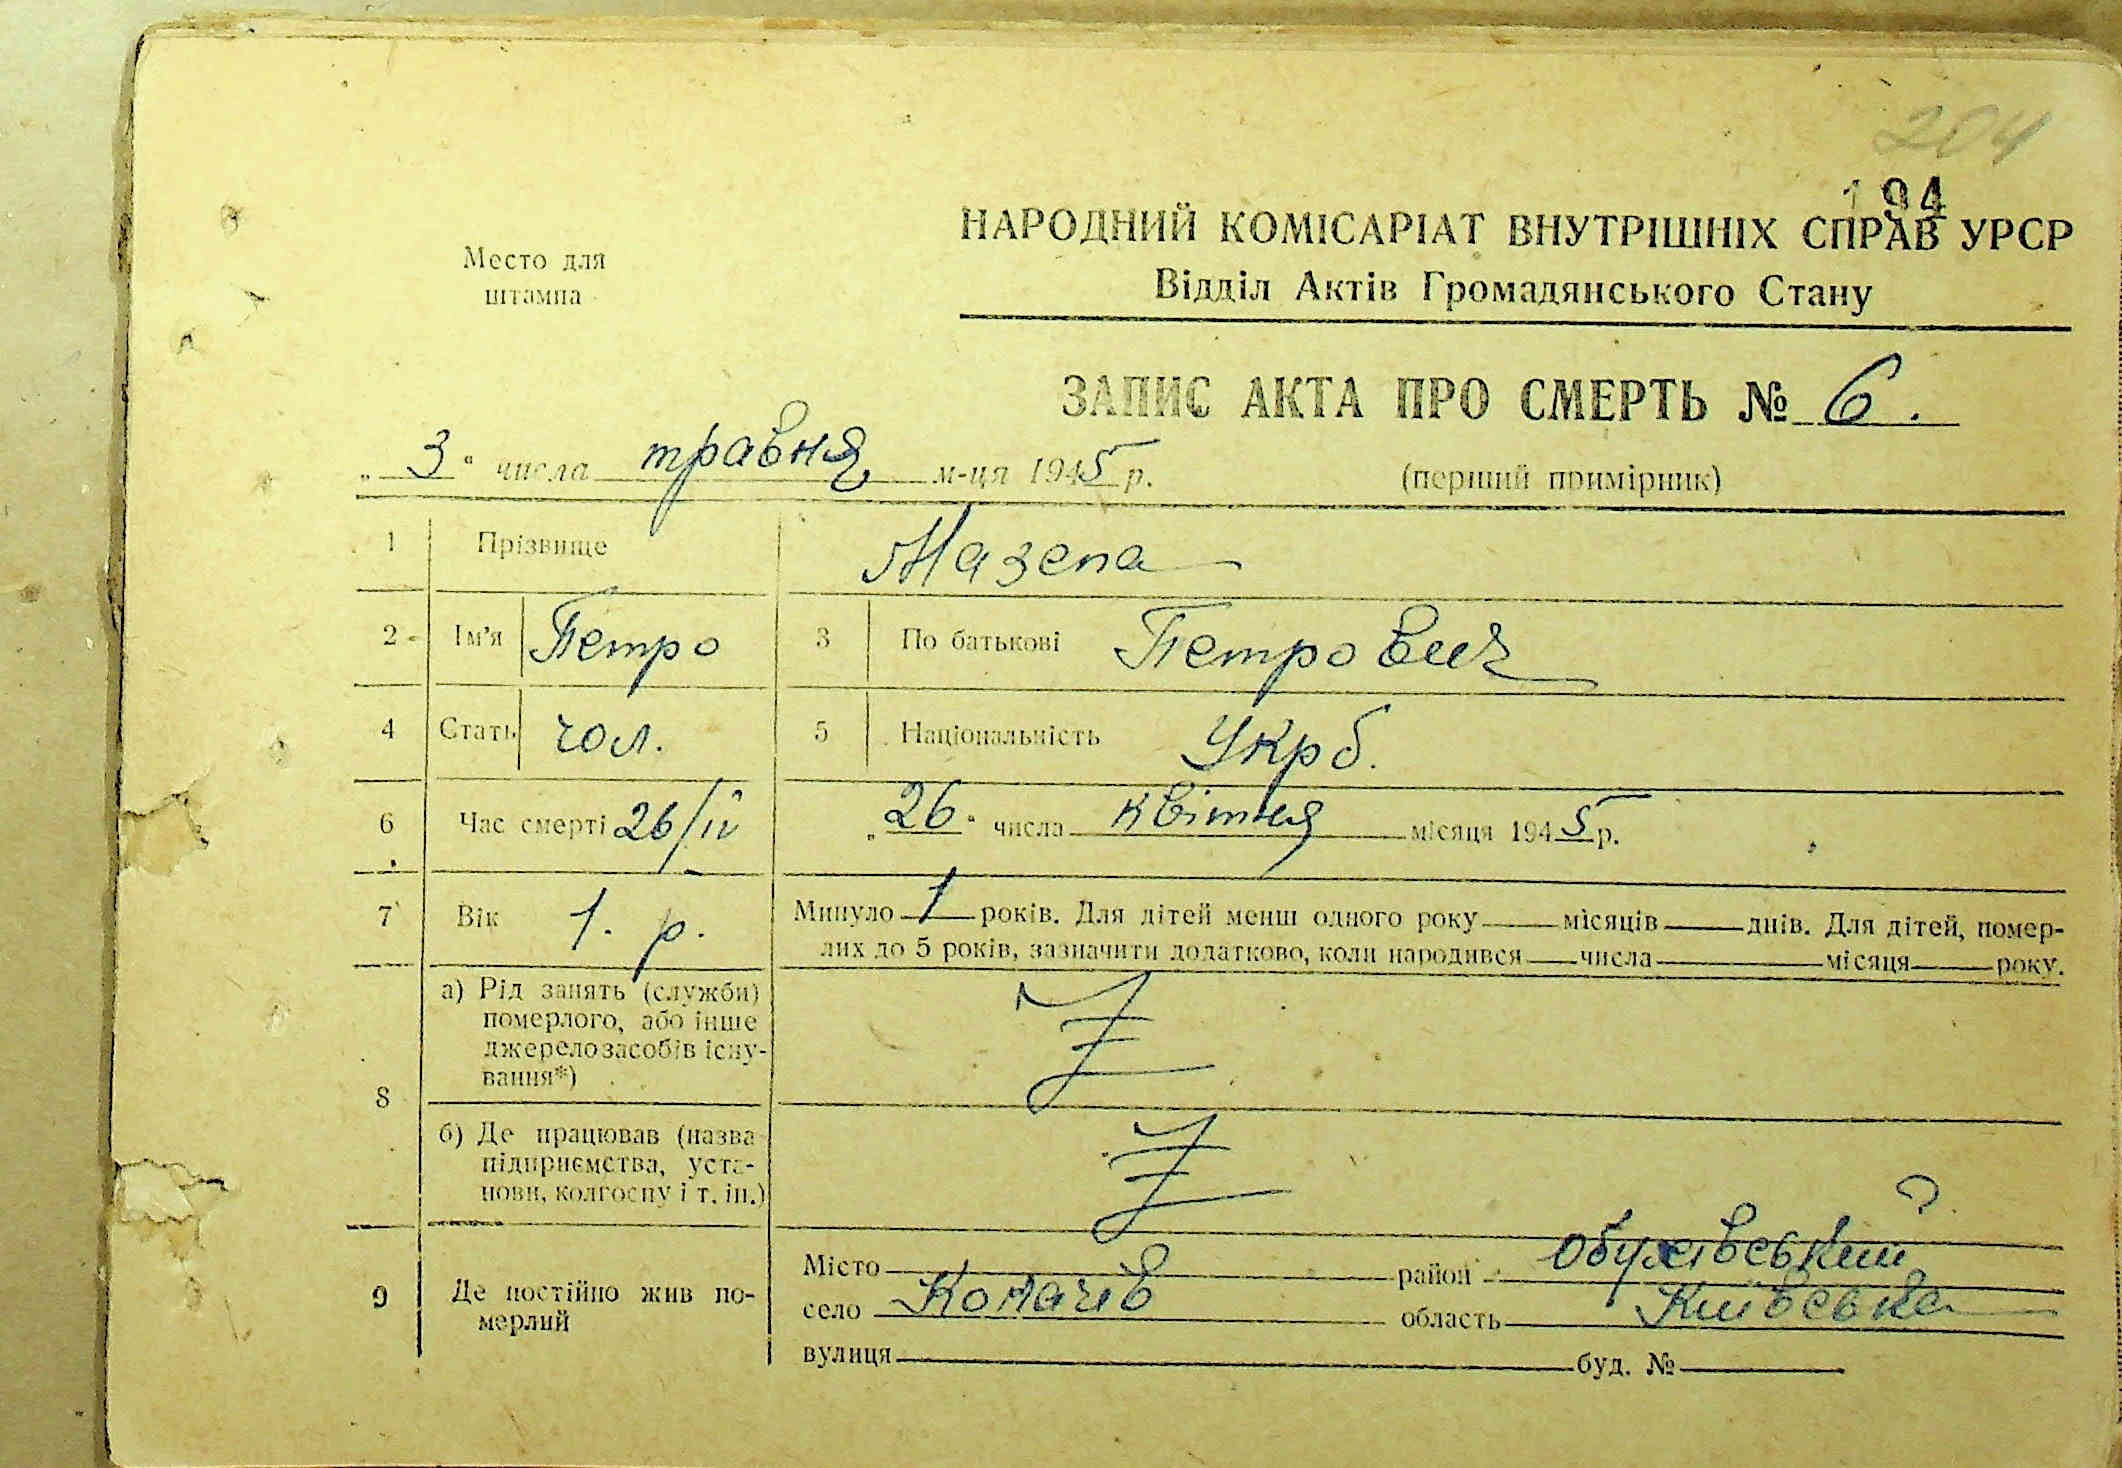 204
194
НАРОДНИЙ КОМІСАРІАТ ВНУТРІШНІХ СПРАВ УРСР
Место для
штампа
Відділ Актів Громадянського Стану
ЗАПИС АКТА ПРО СМЕРТЬ № 6.
„3“ числа травня м-ця 1945 р.
(перший примірник)
1 Прізвище Мазепа
2 Ім'я Петро 3 По батькові Петрович
4 Стать чол. 5 Національність Укр б.
6 Час смерті 26/IV „26“ числа квітня місяця 1945 р.
7 Вік 1. р. Минуло 1 років. Для дітей менш одного року місяців днів. Для дітей, помер-
лих до 5 років, зазначити додатково, коли народився числа місяця року.
8 а) Рід занять (служби)
померлого, або інше
джерело засобів існу-
вання*)
б) Де працював (назва
підприємства, уста-
нови, колгоспу і т. ін.)
9 Де постійно жив по-
мерлий
Місто район Обухівський
село Копачів область Київська
вулиця буд. №